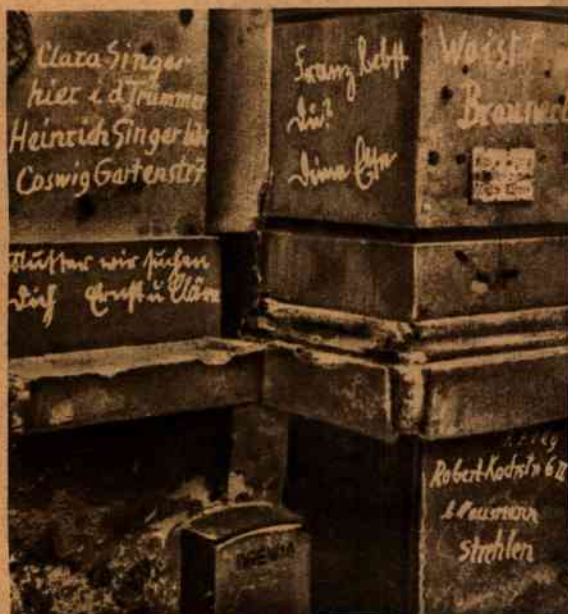 Clara Singer
hier i d Trümmer
Heinrich Singer
Coswig Gartenstr 7
Mutter wir suchen
Dich Ernst u Cläre
Franz lebst
Du?
Deine Ete
Weist
Robert-Kochstr 6 II
b Neumann
Strehlen